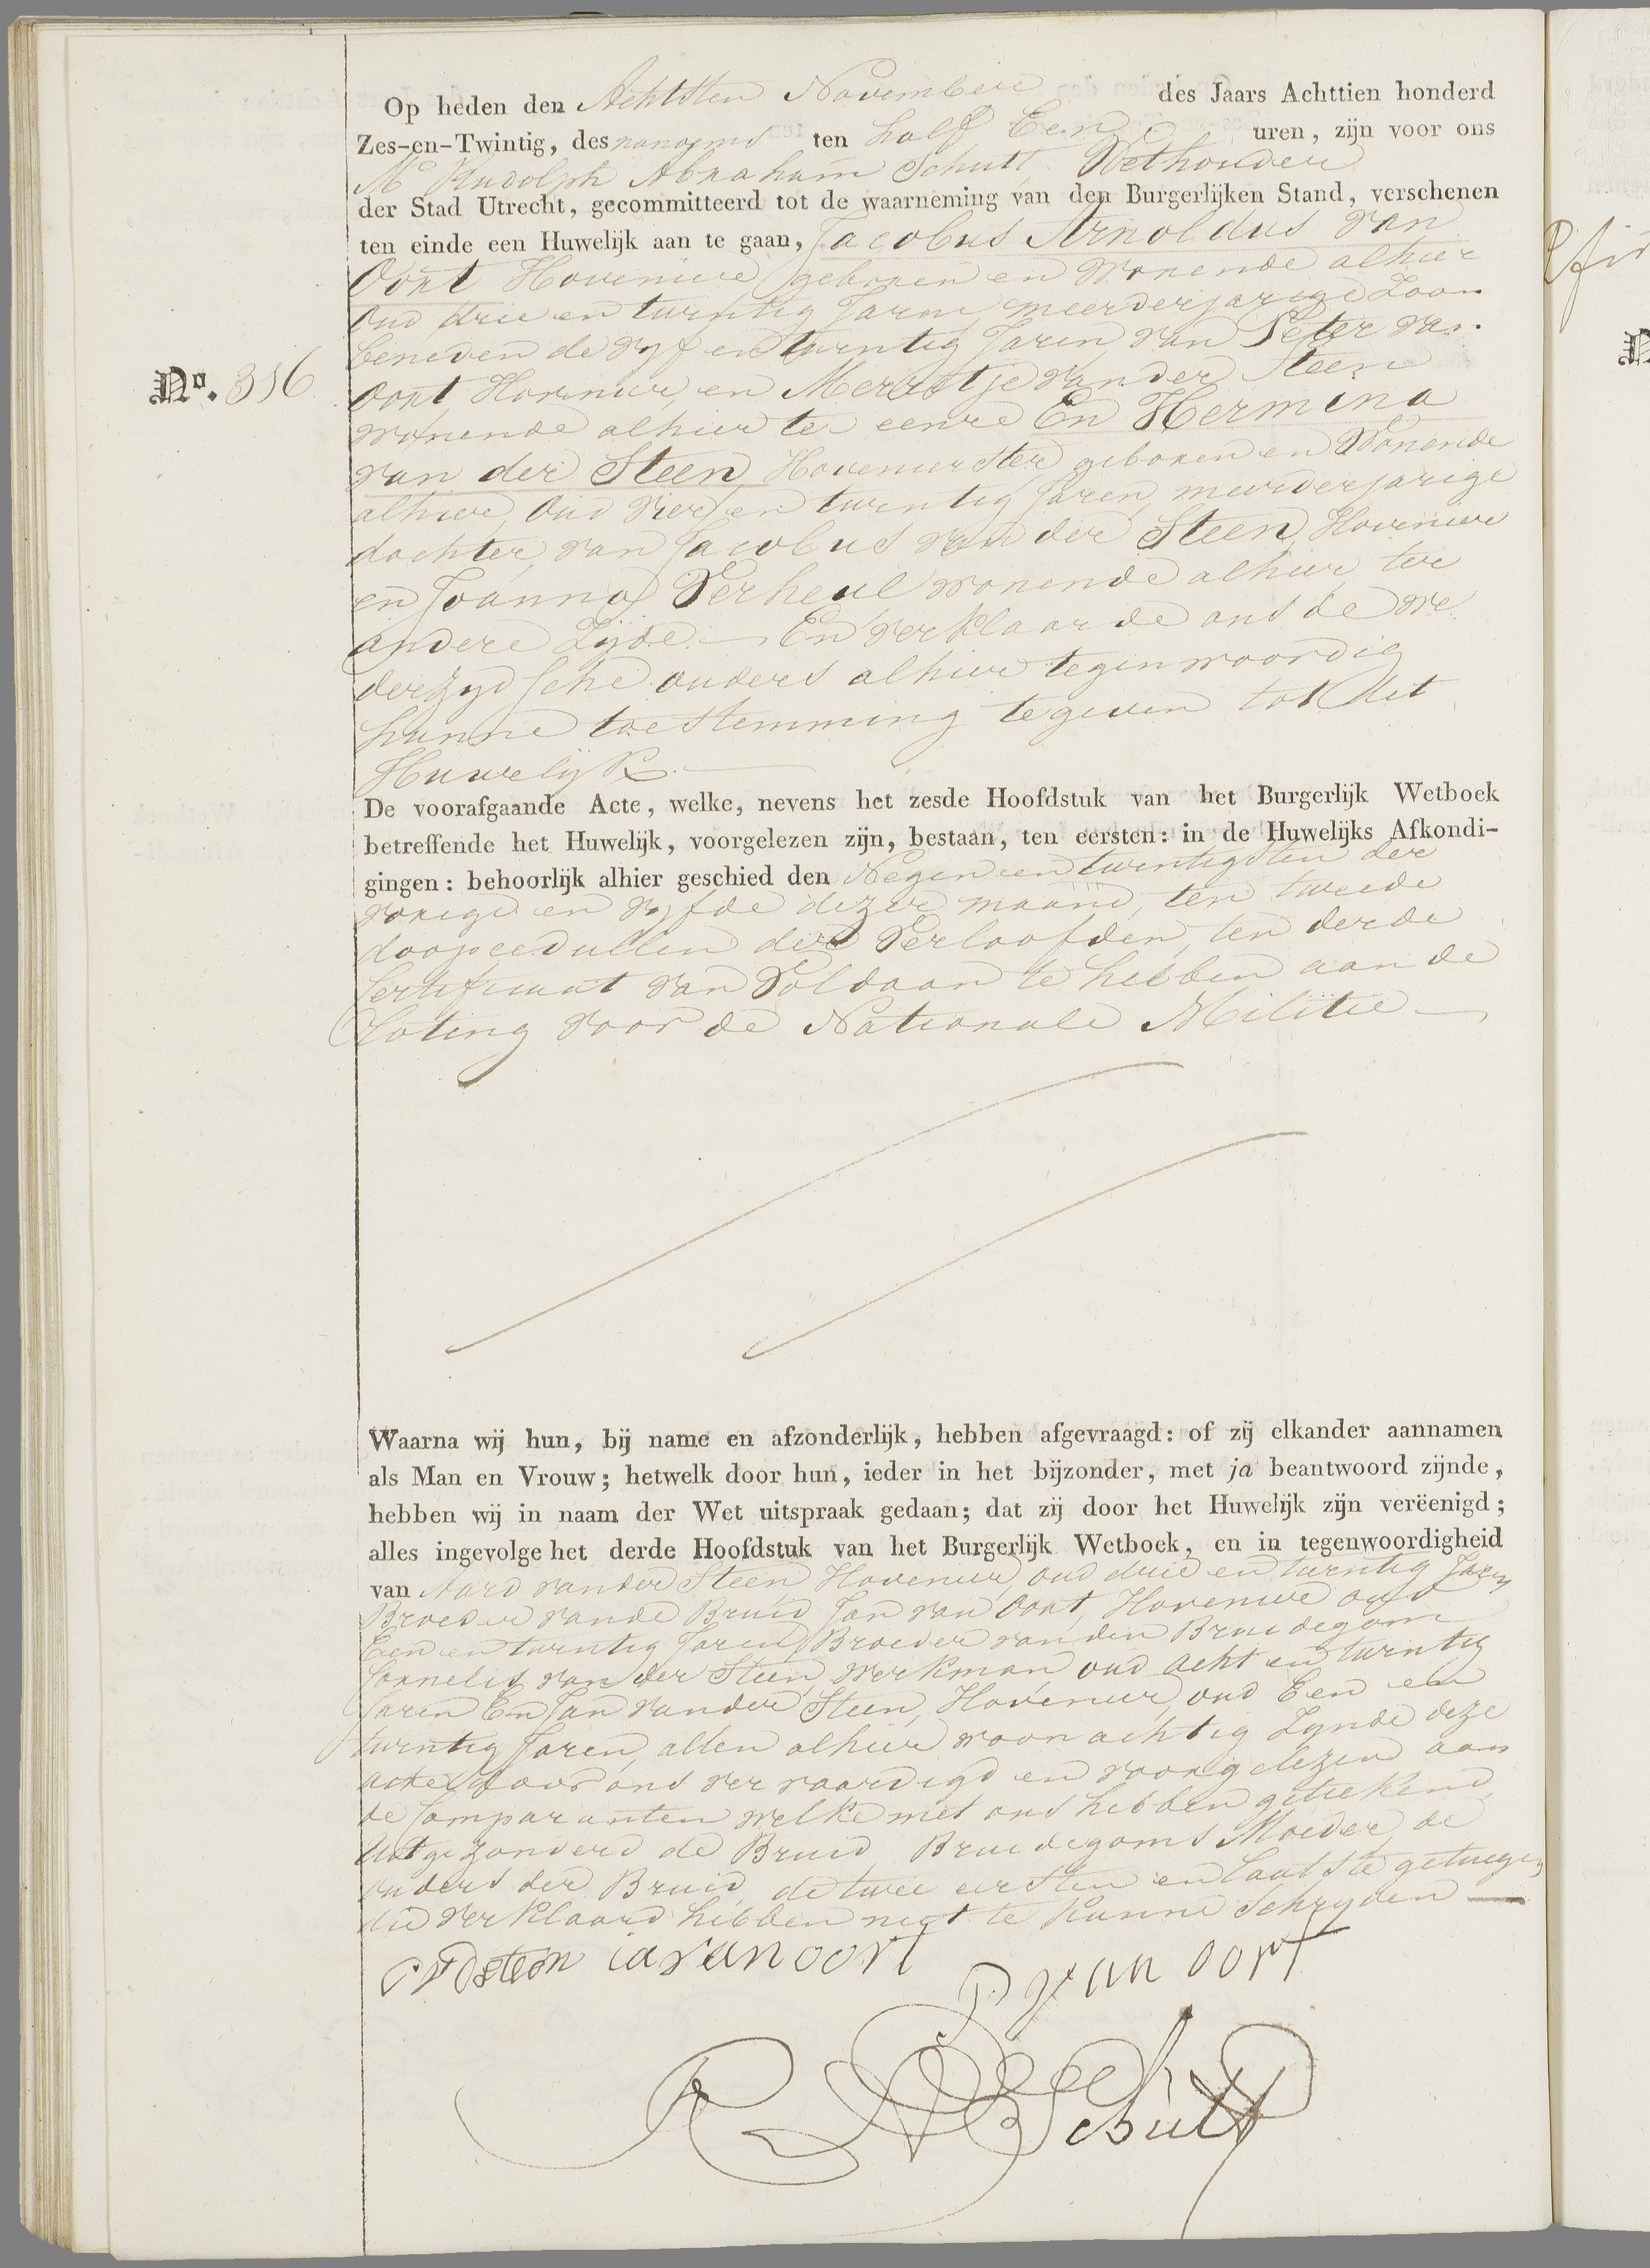 Op heden den Achtsten November des Jaars Achttien honderd
Zes-en-Twintig, des namidds ten half Een uren, zijn voor ons
Mr Rudolph Abraham Schutt Wethouder
der Stad Utrecht, gecommitteerd tot de waarneming van den Burgerlijken Stand, verschenen
ten einde een Huwelijk aan te gaan, Jacobus Arnoldus van
Oort Hovenier geboren en Wonende alhier
Oud drie en twintig Jaren meerderjarige Zoon
beneden de vyf en twintig Jaren van Peter van
Oort Hovenier, en Merrigje van der Steen
No. 316
wonende alhier te eenre En Hermina
van der Steen Hovenierster geboren en Wonende
alhier, Oud vier en twintig Jaren, meerderjarige
dochter, van Jacobus van der Steen, Hovenier
en Joanna Verheul wonende alhier ter
andere Zyde. En verklaarde ons de we
derzydsche ouders alhier tegenwoordig
hunne toestemming te geven tot dit
Huwelijk.
De voorafgaande Acte, welke, nevens het zesde Hoofdstuk van het Burgerlijk Wetboek
betreffende het Huwelijk, voorgelezen zijn, bestaan, ten eersten: in de Huwelijks Afkondi-
gingen: behoorlijk alhier geschied den Negen en twintigsten der
vorige en vyfde dezer maand, ten tweede
doopceedullen der Verloofden, ten derde
Certificaat van Voldaan te hebben aan de
Loting voor de Nationale Militie
Waarna wij hun, bij name en afzonderlijk, hebben afgevraagd: of zij elkander aannamen
als Man en Vrouw; hetwelk door hun, ieder in het bijzonder, met ja beantwoord zijnde,
hebben wij in naam der Wet uitspraak gedaan; dat zij door het Huwelijk zijn verëenigd;
alles ingevolge het derde Hoofdstuk van het Burgerlijk Wetboek, en in tegenwoordigheid
van Aard van der Steen Hovenier, oud drie en twintig Jaren
Broeder van de Bruid, Jan van Oort, Hovenier oud
Een en twintig Jaren, Broeder van den Bruidegom
Cornelis van der Steen, werkman, oud Acht en twintig
Jaren En Jan van der Steen, Hovenier, oud Een en
twintig Jaren, allen alhier woonachtig Zynde deze
acte door ons vervaardigd en voorgelezen aan
de Comparanten welke met ons hebben getekend,
Uitgezonderd de Bruid, Bruidegoms Moeder, de
ouders der Bruid, de twee eersten en laatste getuigen
die verklaard hebben niet te kunne Schryven
C V D steen ia van oort
P van oort
R A Schutt